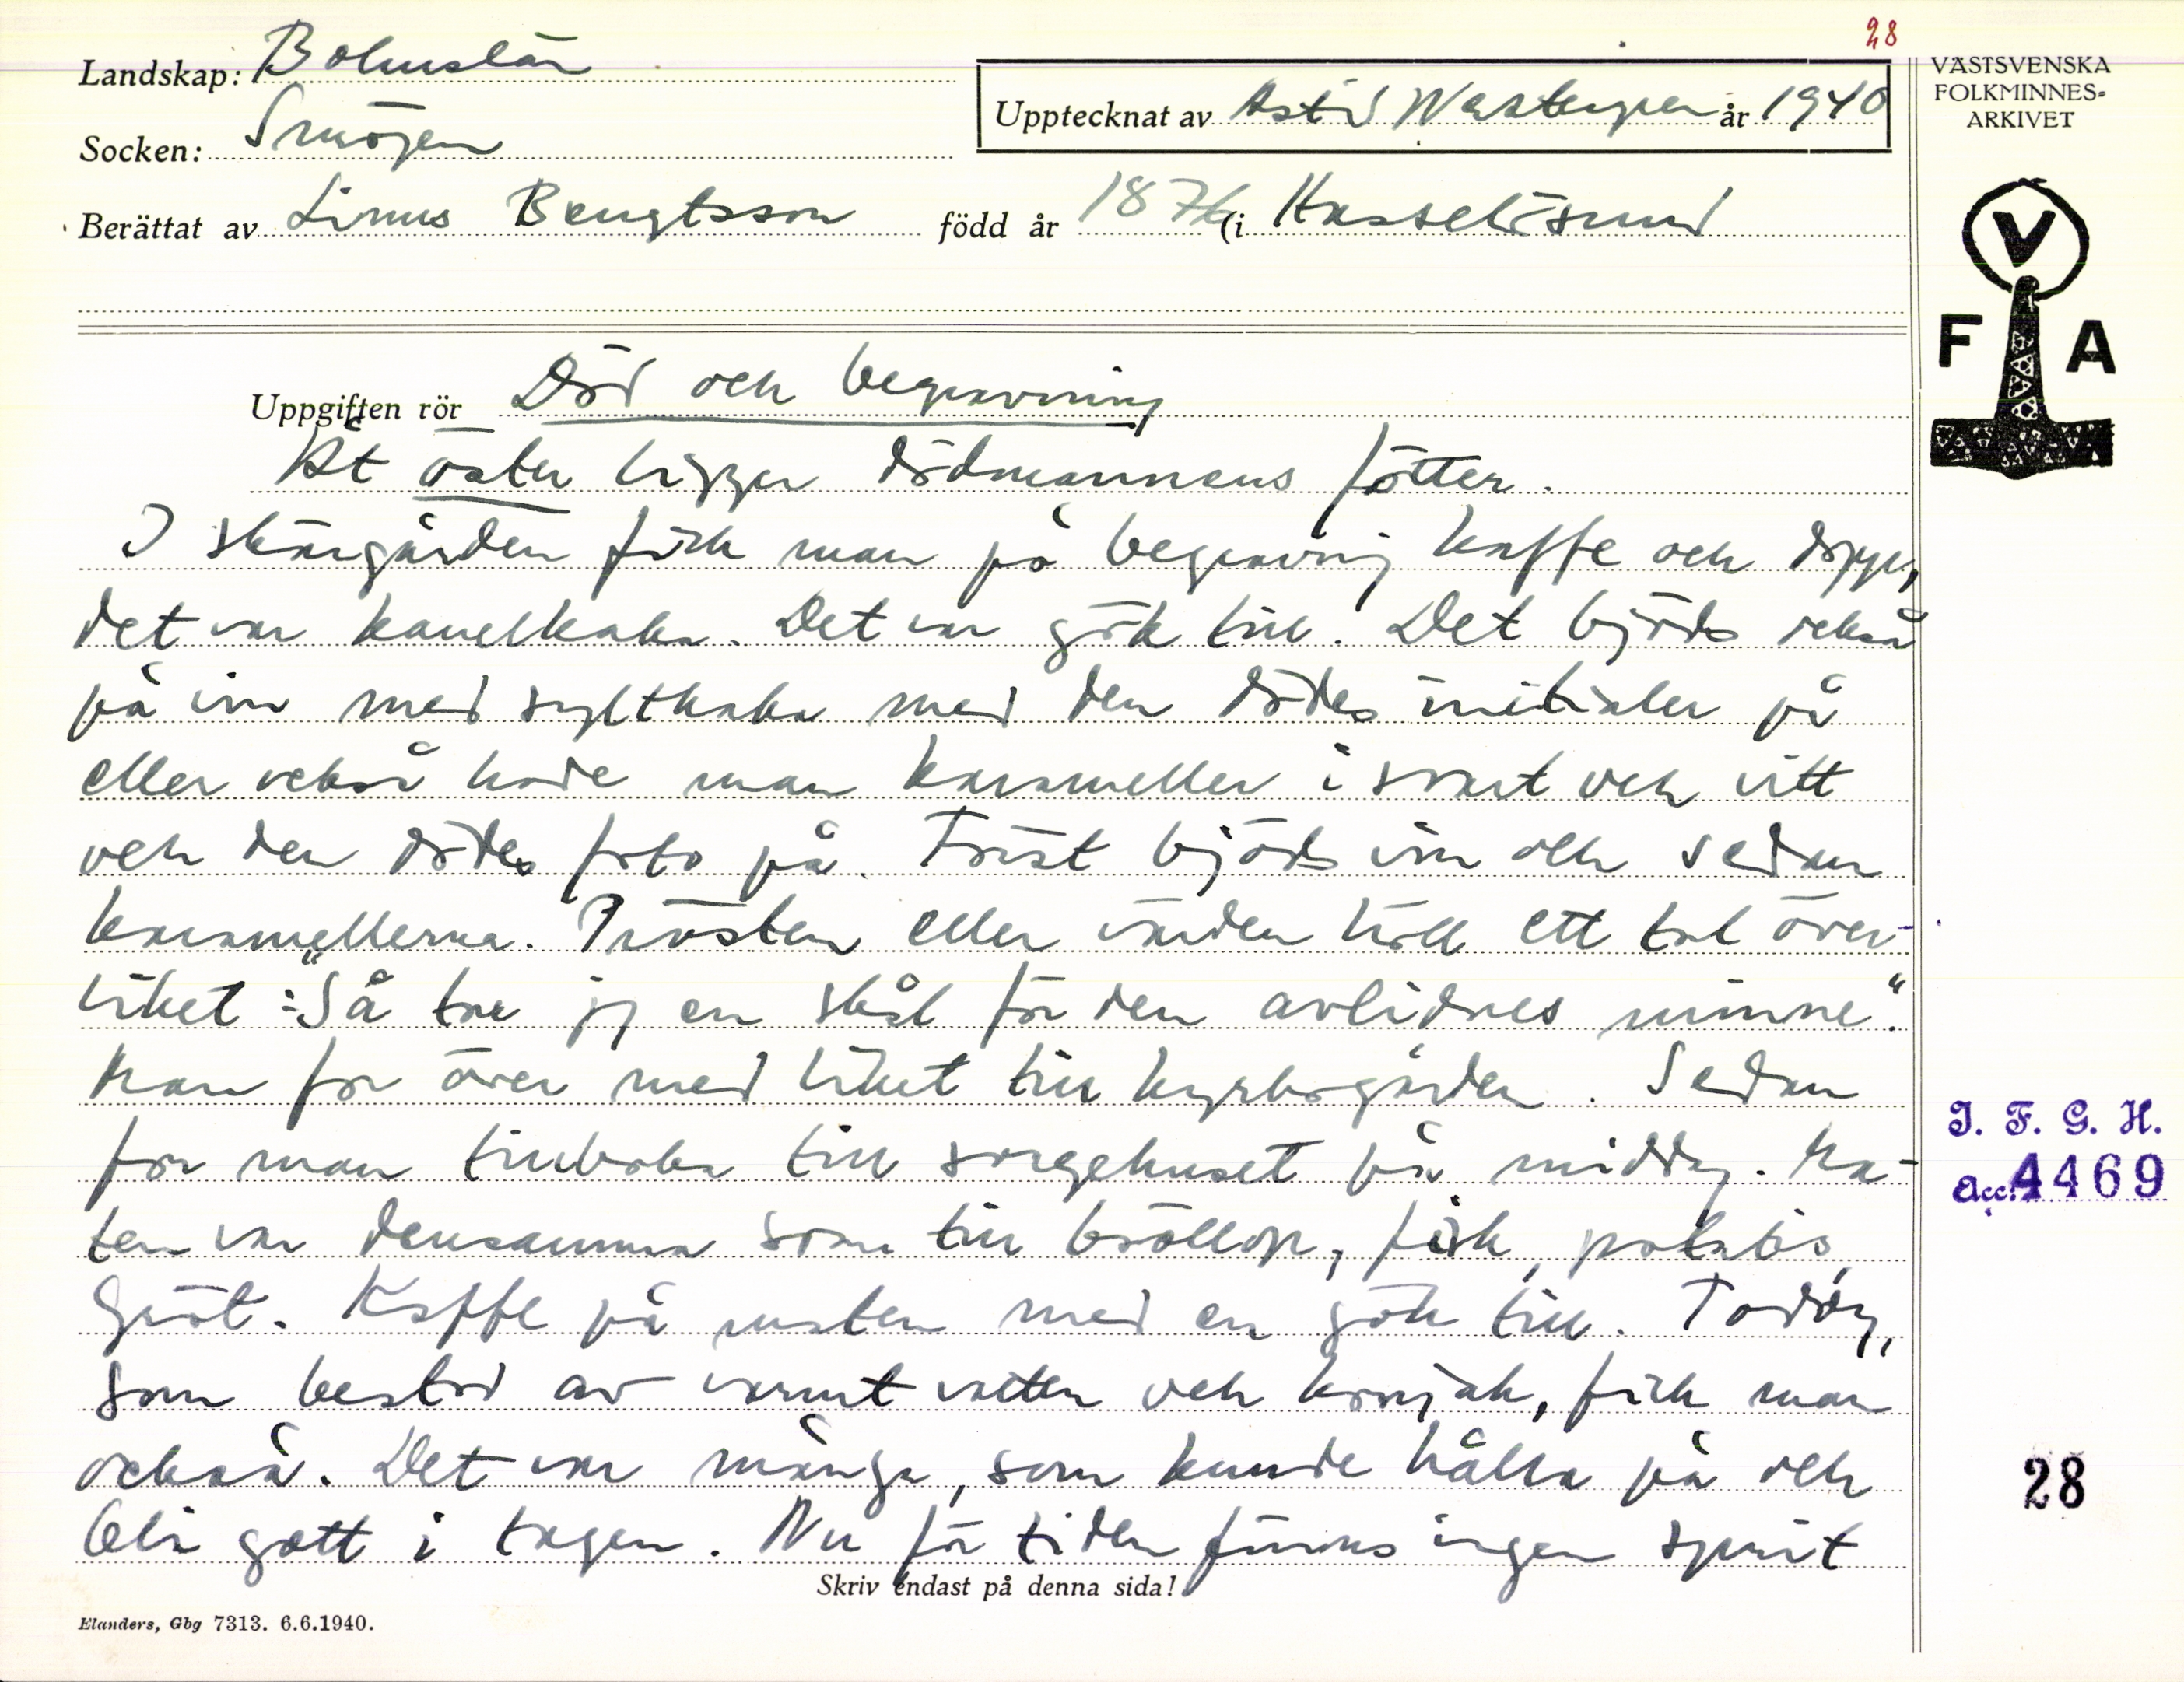 28
Landskap: Bohuslän
Socken: Smögen
Upptecknat av Astrid Westergren år 1940
Berättat av Linus Bengtsson född år 1876 (i Hasselösund
VÄSTSVENSKA
FOLKMINNES-
ARKIVET
V
F A
Uppgiften rör Död och begravning
Åt öster ligger dödmannens fötter.
I skärgården fick man på begravning kaffe och dopp,
det var kanelkaka. Det var gök till. Det bjöds också
på vin med syltkaka med den dödes initialer på
eller också hade man karameller i svart och vitt
och den dödes foto på. Först bjöds vin och sedan
karamellerna. Prästen eller värden höll ett tal över
liket: "Så tar jag en skål för den avlidnes minne."
Man for över med liket till kyrkogården. Sedan
for man tillbaka till sorgehuset på middag. Ma-
ten var densamma som till bröllop, fisk, potatis,
Gröt. Kaffe på maten med en gök till. Toddy,
som bestod av varmt vatten och konjak, fick man
också. Det var många, som kunde hålla på och
bli gott i tagen. Nu för tiden finns ingen sprit
Skriv endast på denna sida!
Elanders, Gbg 7313. 6.6.1940.
I. F. G. H.
Acc. 4469
28